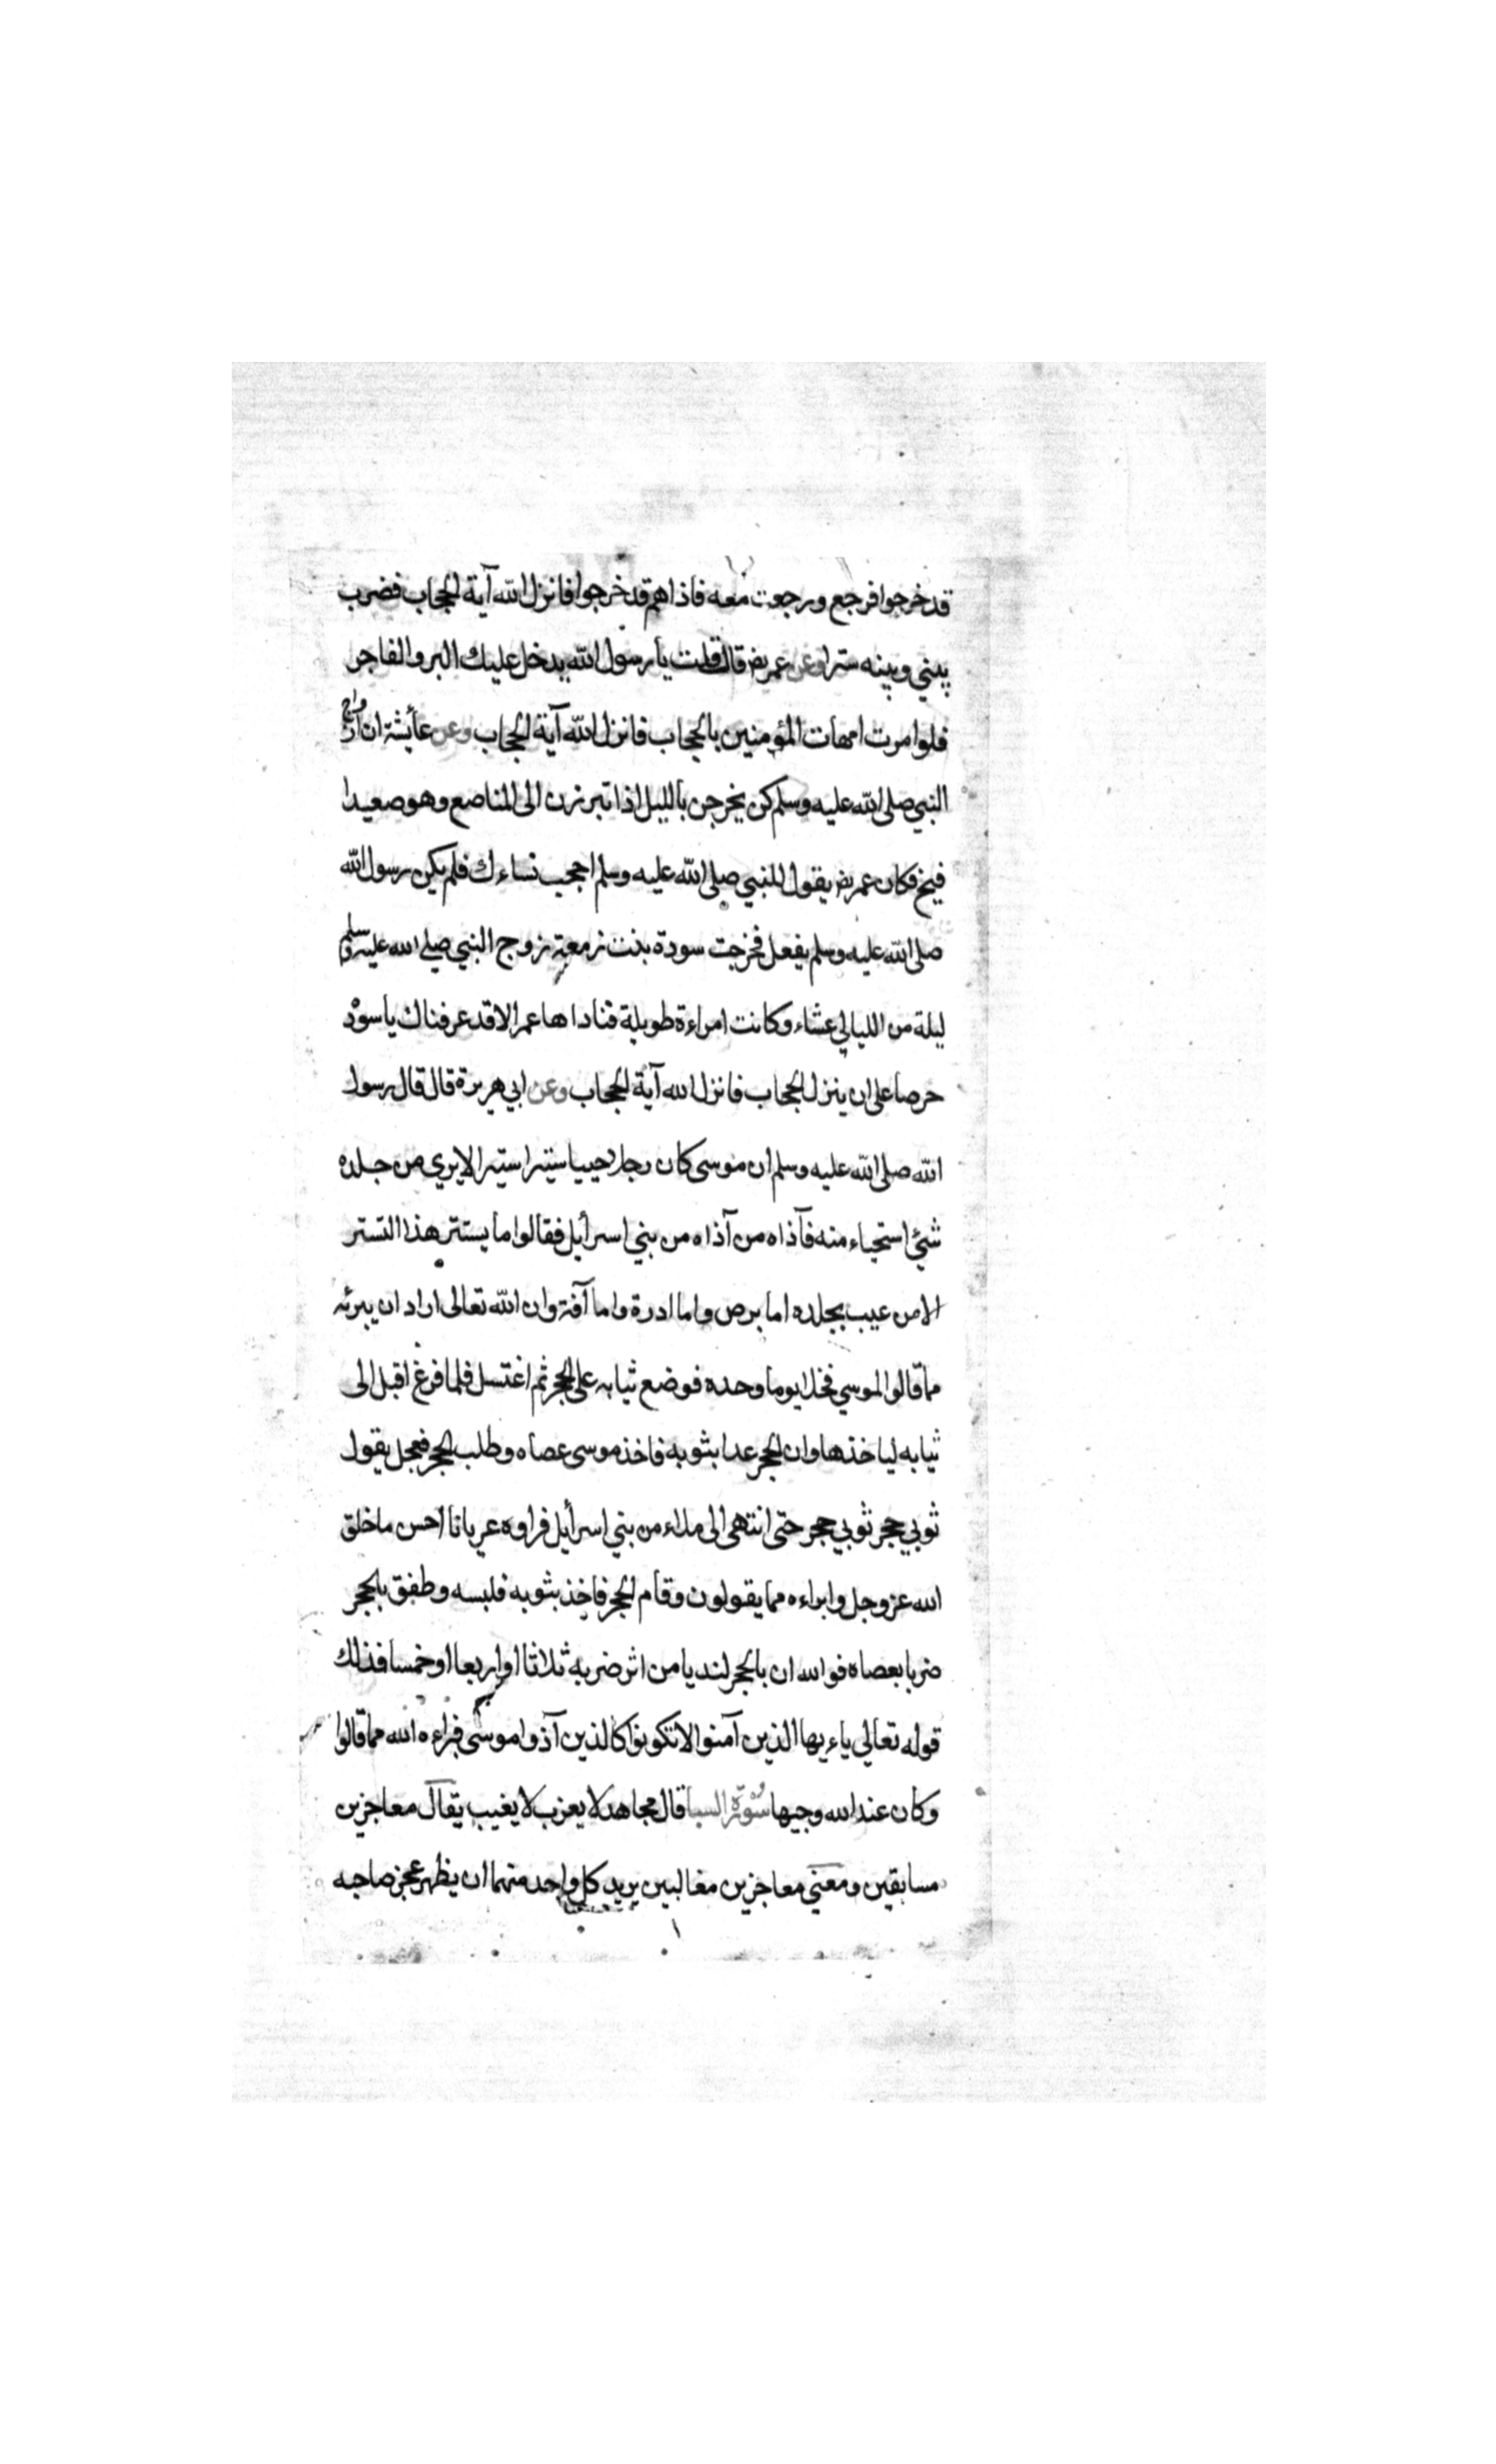 قد خرجوا فرجع ورجعت معه فاذا هم قد خرجوا فانزل الله آية الحجاب فضرب
بيني وبينه سترا وعن عمر رض قال قلت يا رسول الله يدخل عليك البر والفاجر
فلو امرت امهات المؤمنين بالحجاب فانزل الله آية الحجاب وعن عائشة ان ازواج
النبي صلى الله عليه وسلم كن يخرجن بالليل اذا تبرزن الى المناصع وهو صعيدا
فيخ فكان عمر رض يقول للنبي صلى الله عليه وسلم احجب نساءك فلم يكن رسول الله
صلى الله عليه وسلم يفعل فخرجت سودة بنت زمعة زوج النبي صلى الله عليه وسلم
ليلة من الليالي عشاء وكانت امراءة طويلة فناداها عمر الا قد عرفناك يا سودة
حرصا على ان ينزل الحجاب فانزل الله آية الحجاب وعن ابي هريرة قال قال رسول
الله صلى الله عليه وسلم ان موسى كان رجلا حييا ستيرا ستيرا لا يري من جلده
شئ استحياء منه فآذاه من آذاه من بني اسرأيل فقالوا ما يستتر هذا التستر
الا من عيب بجلده اما برص واما ادرة واما آفة وان الله تعالى اراد ان يبرئه
مما قالوا لموسي فخلا يوما وحده فوضع ثيابه على الحجر ثم اغتسل فلما فرغ اقبل الى
ثيابه لياخذها وان الحجر عدا بثوبه فاخذ موسى عصاه وطلب الحجر فجعل يقول
ثوبي حجر ثوبي حجر حتى انتهى الى ملاء من بني اسرأيل فراوه عريانا احسن ما خلق
الله عز وجل وابراءه مما يقولون وقام الحجر فاخذ بثوبه فلبسه وطفق بالحجر
ضربا بعصاه فوالله ان بالحجر لنديا من اثر ضربه ثلاثا او اربعا او خمسا فذلك
قوله تعالي ياءيها الذين آمنوا لا تكونوا كالذين آذوا موسى فبراءه الله مما قالوا
وكان عند الله وجيها سورة السبا قال مجاهد لا يعزب لا يغيب يقال معاجزين
مسابقين ومعني معاجزين مغالبين يريد كل واحد منهما ان يظهر عجز صاحبه